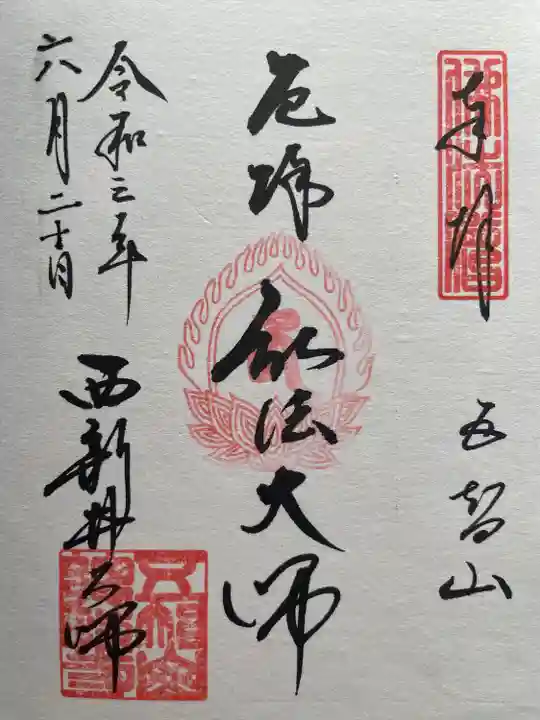 奉拝
五智山
厄除
弘法大師
令和三年
六月二十日
西新井大師